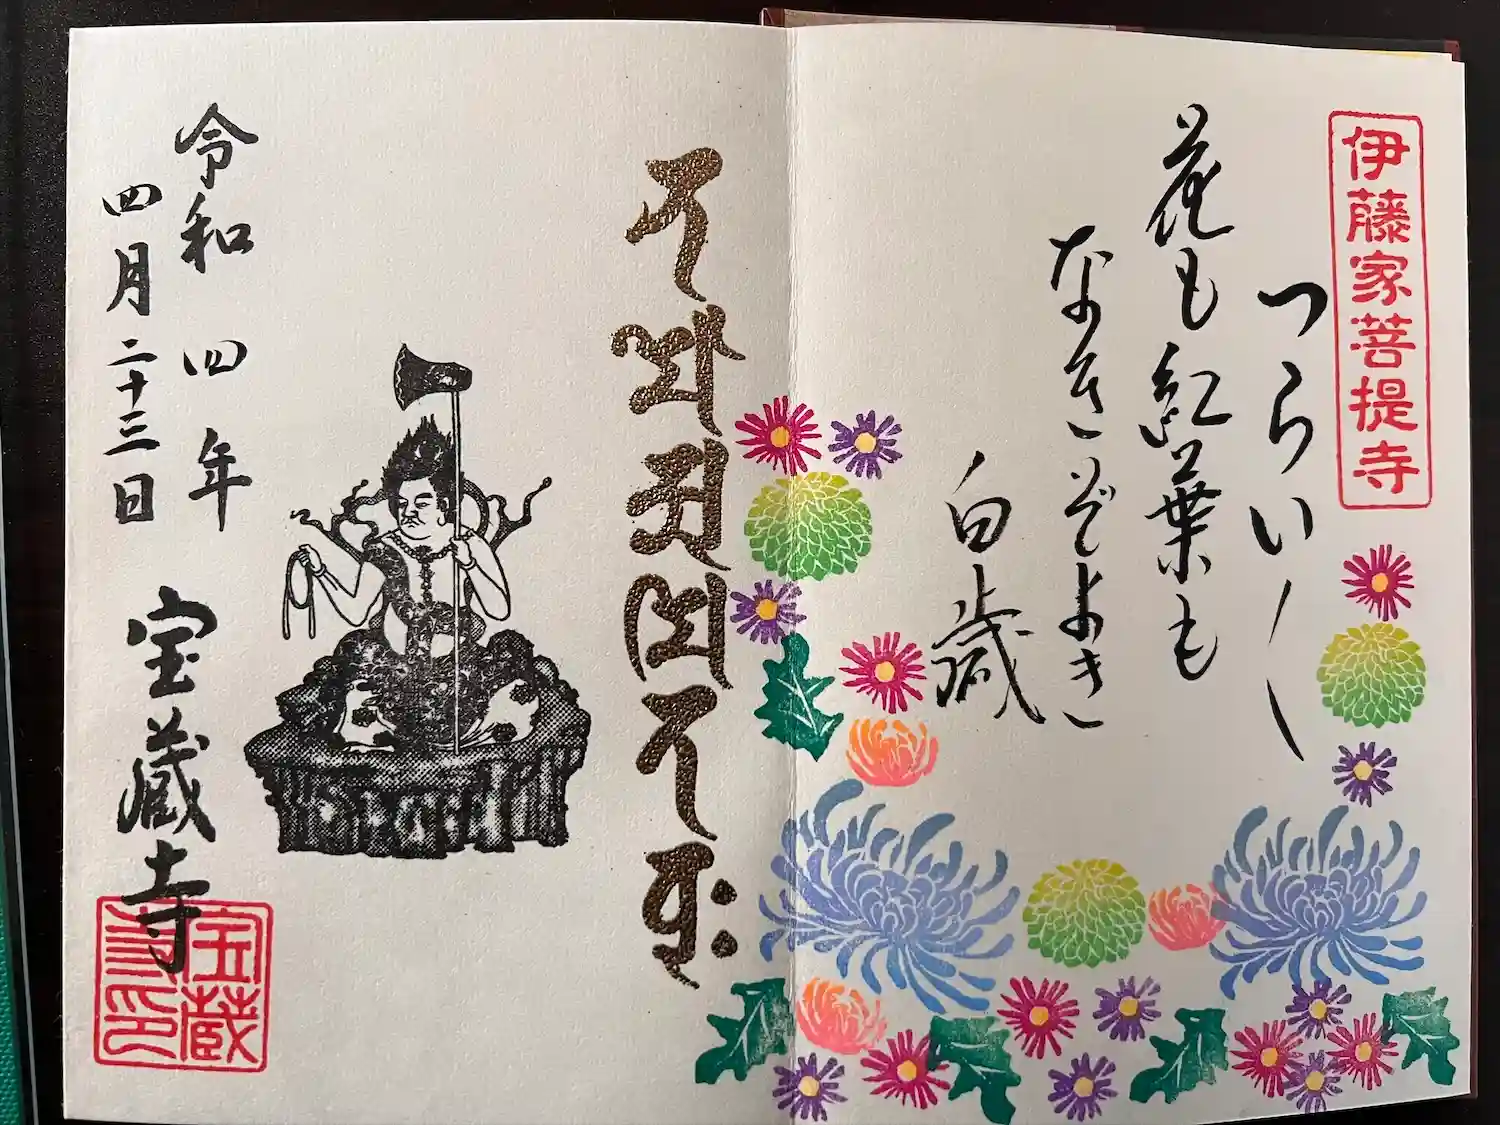 伊藤家菩提寺
つらい〱
花も紅葉も
なきぞよき
白歳
令和四年
四月二十三日
宝蔵寺
宝蔵寺印